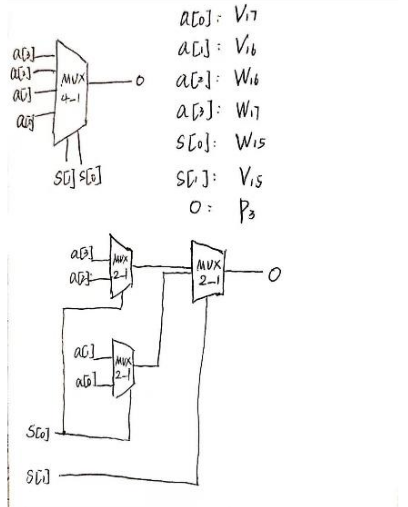 a[3]
a[2]
a[1]
a[0]
MUX
4-1
O
S[1] S[0]
a[0]: V17
a[1]: V16
a[2]: W16
a[3]: W17
S[0]: W15
S[1]: V15
O: P3
a[3]
a[2]
MUX
2-1
MUX
2-1
O
a[1]
a[0]
MUX
2-1
S[0]
S[1]